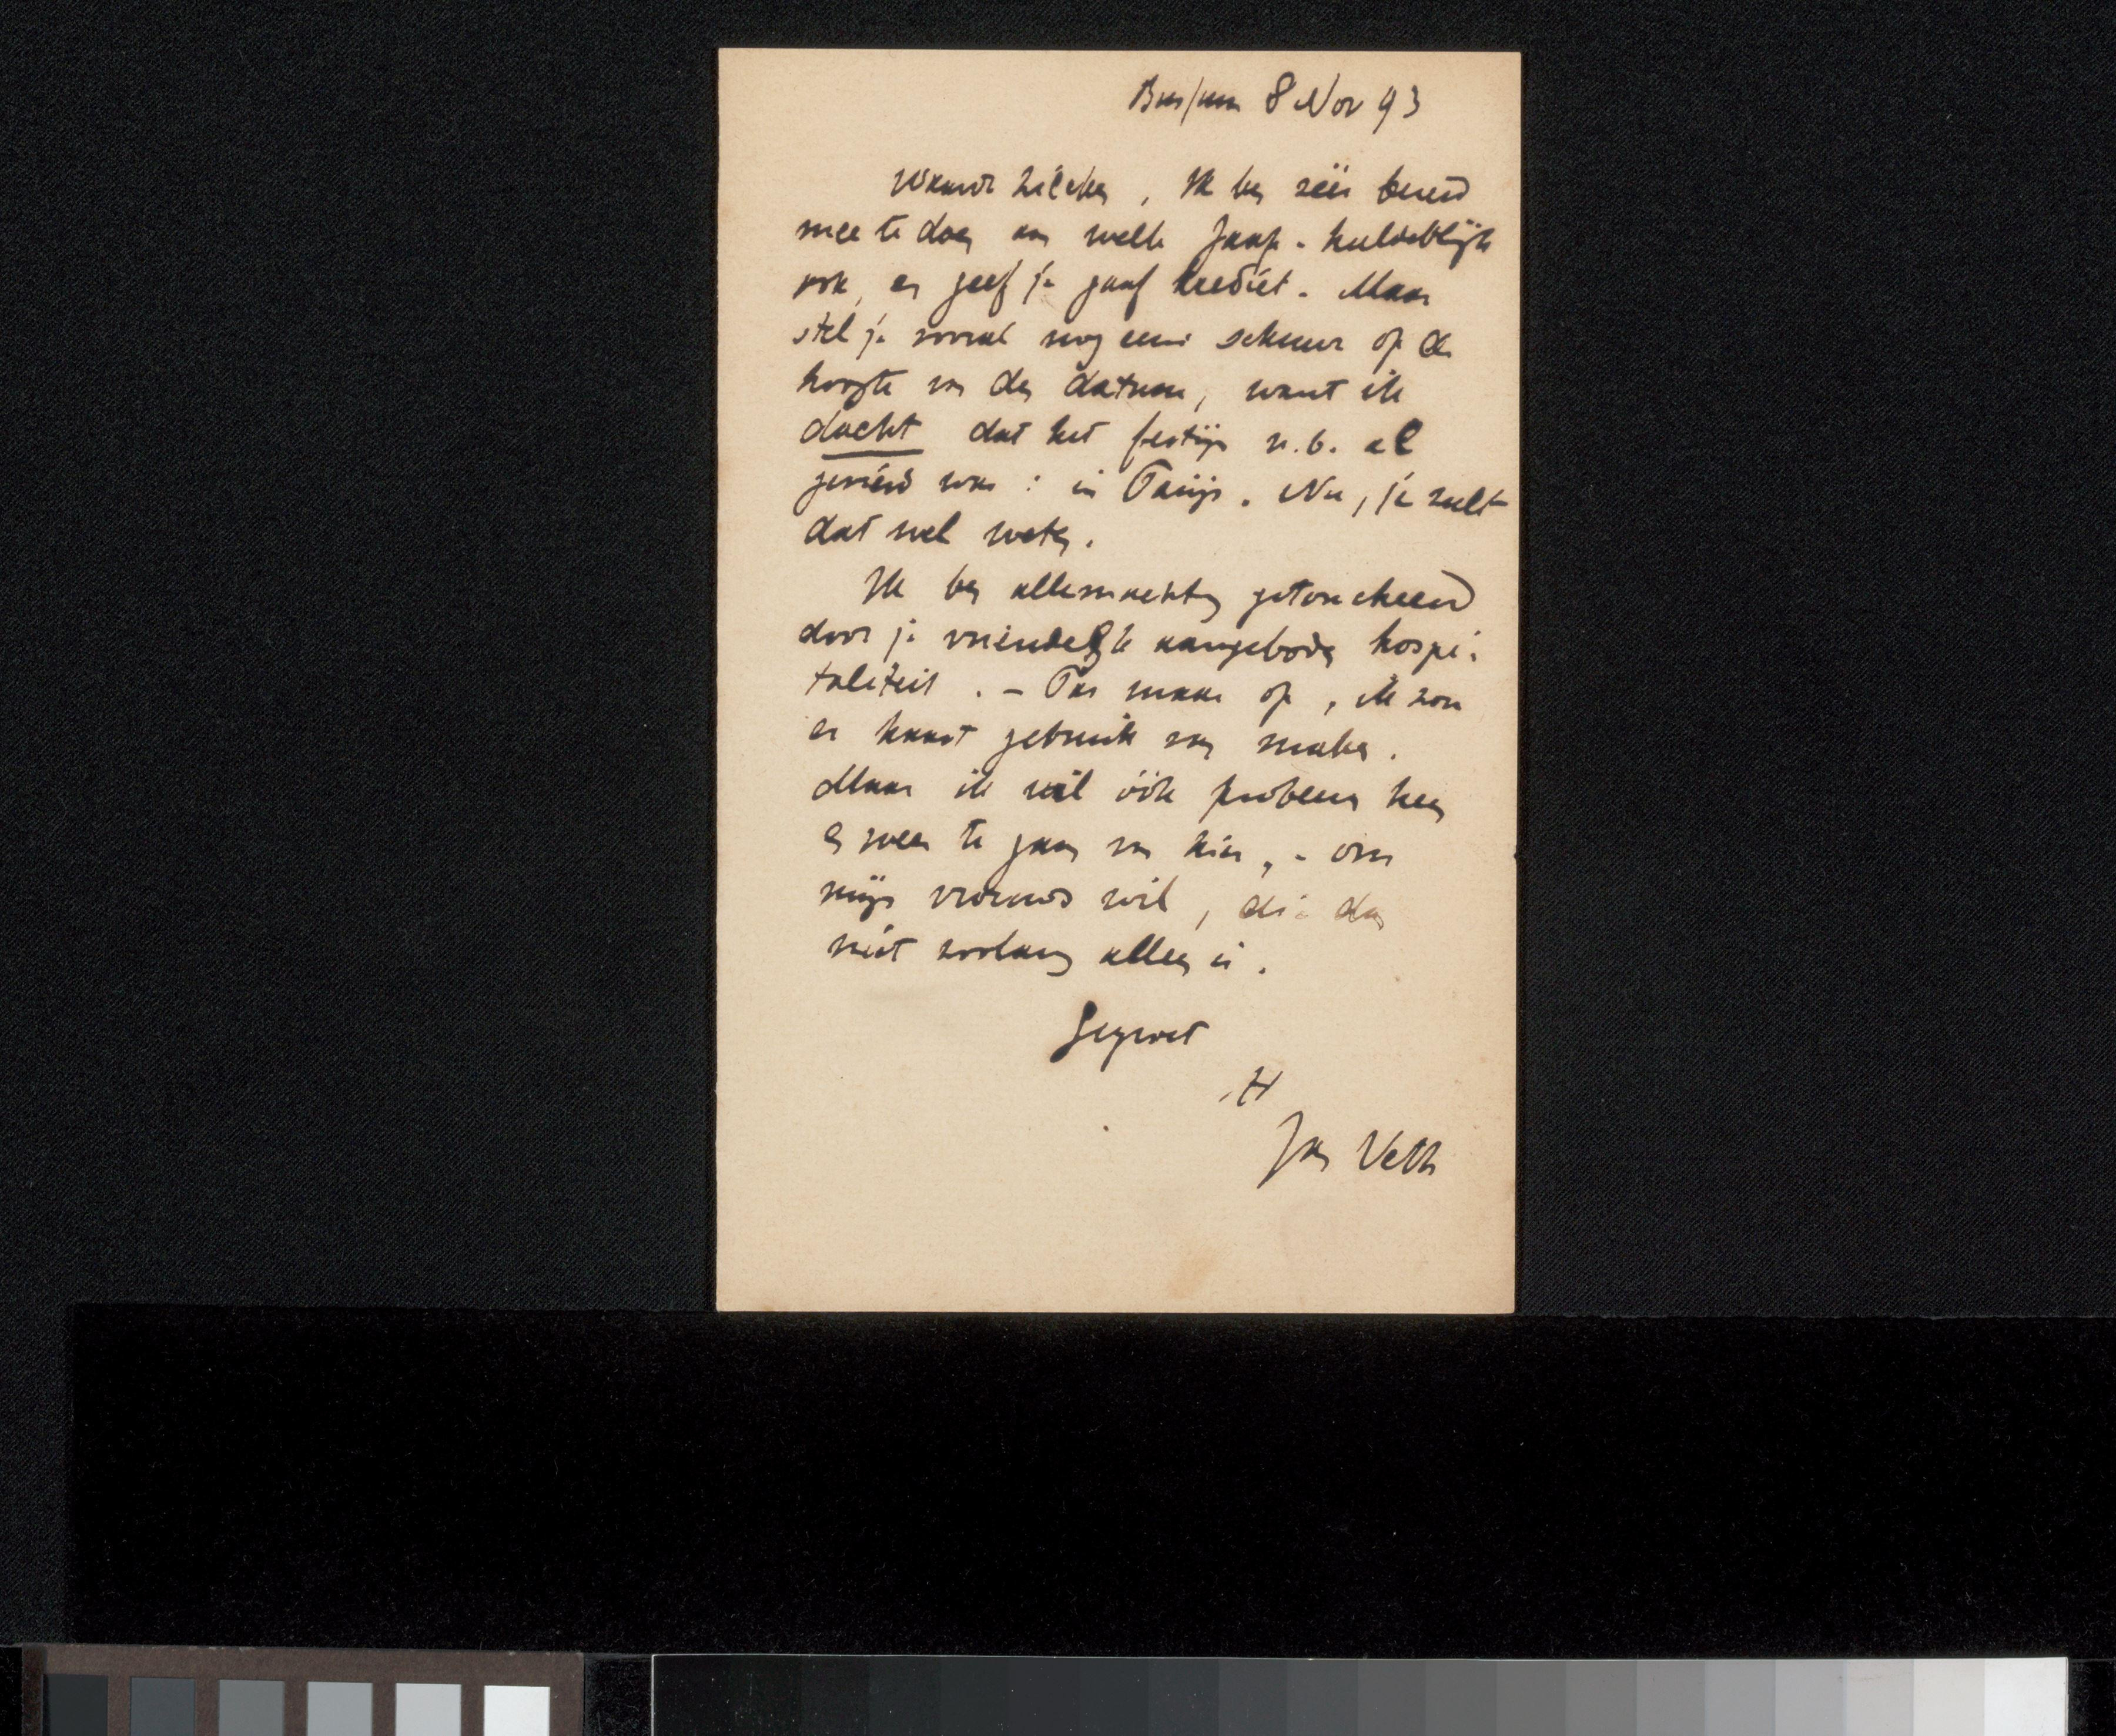 Bussum 8 Nov 93
Waarde Zilcken, Ik ben zéér bereid
mee te doen aan welk Jaap-huldeblijk
ook, en geef je gaaf krediet. Maar
stel je vooral nog eens sekuur op de
hoogte van den datum, want ik
dacht dat het festijn n.b. al
gevierd was: in Parijs. Nu, je zult
dat wel weten.
Ik ben allemachtig getoucheerd
door je vriendelijk aangeboden hospi-
taliteit. – Pas maar op, ik zou
er haast gebruik van maken.
Maar ik wil óók probeeren heen
en weer te gaan van hier, - om
mijn vrouws wil, die dan
niet zoolang alleen is.
Gegroet
tt
Jan Veth